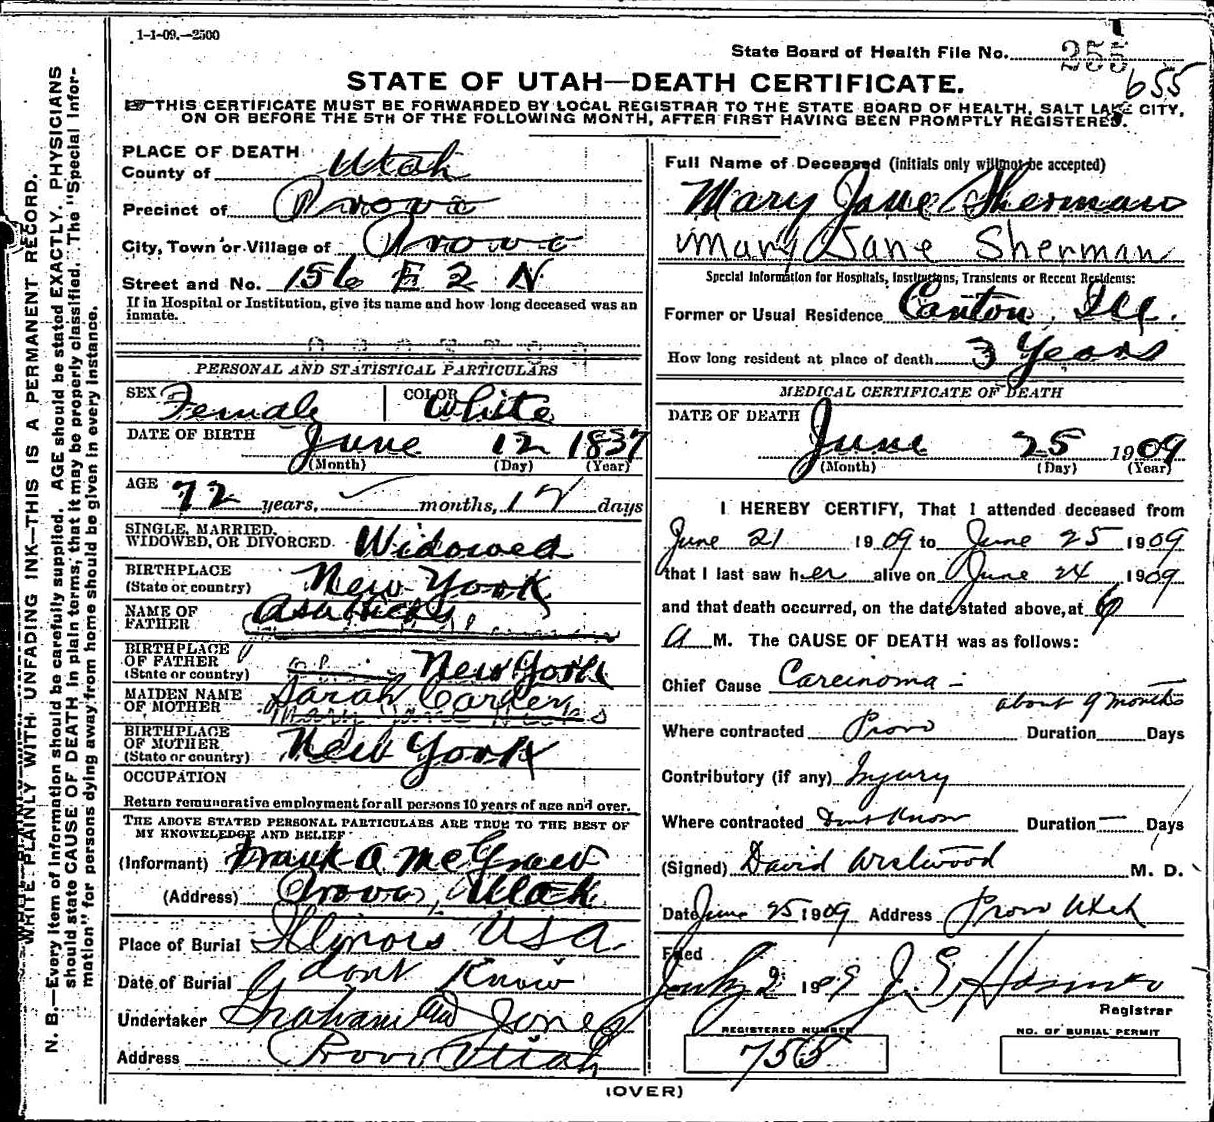 1-1-09.—2500
State Board of Health File No. 255
655
STATE OF UTAH—DEATH CERTIFICATE.
☞THIS CERTIFICATE MUST BE FORWARDED BY LOCAL REGISTRAR TO THE STATE BOARD OF HEALTH, SALT LAKE CITY,
ON OR BEFORE THE 5TH OF THE FOLLOWING MONTH, AFTER FIRST HAVING BEEN PROMPTLY REGISTERED.
WRITE PLAINLY WITH UNFADING INK—THIS IS A PERMANENT RECORD.
N. B.—Every item of information should be carefully supplied. AGE should be stated EXACTLY. PHYSICIANS
should state CAUSE OF DEATH in plain terms, that it may be properly classified. The "Special Infor-
mation" for persons dying away from home should be given in every instance.
PLACE OF DEATH
County of Utah
Precinct of Provo
City, Town or Village of Provo
Street and No. 156 E 2 N
If in Hospital or Institution, give its name and how long deceased was an
inmate.
PERSONAL AND STATISTICAL PARTICULARS
SEX Female COLOR White
DATE OF BIRTH June 12 1837
(Month) (Day) (Year)
AGE 72 years, months, 12 days
SINGLE, MARRIED,
WIDOWED, OR DIVORCED Widowed
BIRTHPLACE
(State or country) New York
NAME OF
FATHER Asa Hicks
BIRTHPLACE
OF FATHER
(State or country) New York
MAIDEN NAME
OF MOTHER Sarah Carder
BIRTHPLACE
OF MOTHER
(State or country) New York
OCCUPATION
Return remunerative employment for all persons 10 years of age and over.
THE ABOVE STATED PERSONAL PARTICULARS ARE TRUE TO THE BEST OF
MY KNOWELEDGE AND BELIEF
(Informant) Frank A McGraw
(Address) Provo, Utah
Place of Burial Illinois USA
Date of Burial dont Know
Undertaker Graham and Jones
Address Provo Utah
Full Name of Deceased (initials only will not be accepted)
Mary Jane Sherman
Mary Jane Sherman
Special Information for Hospitals, Institutions, Transients or Recent Residents:
Former or Usual Residence Canton, Ill.
How long resident at place of death 3 Years
MEDICAL CERTIFICATE OF DEATH
DATE OF DEATH June 25 1909
(Month) (Day) (Year)
I HEREBY CERTIFY, That I attended deceased from
June 21 1909 to June 25 1909
that I last saw her alive on June 24 1909
and that death occurred, on the date stated above, at 6
A M. The CAUSE OF DEATH was as follows:
Chief Cause Carcinoma -
about 9 months
Where contracted Provo Duration Days
Contributory (if any) Injury
Where contracted Dont Know Duration — Days
(Signed) David Westwood M. D.
Date June 25 1909 Address Provo Utah
Filed
July 2 1909 J. E. Hosmer
Registrar
REGISTERED NUMBER
755
NO. OF BURIAL PERMIT
(OVER)